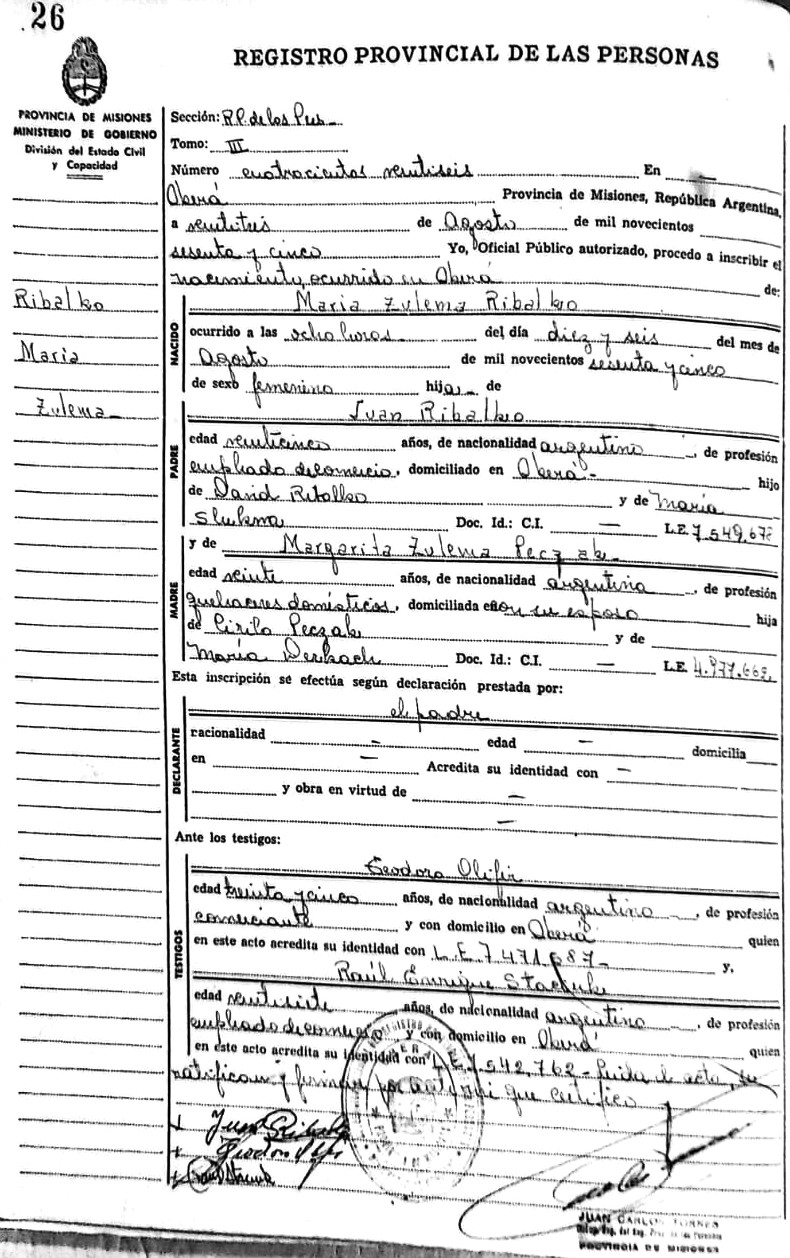 26
REGISTRO PROVINCIAL DE LAS PERSONAS
PROVINCIA DE MISIONES
MINISTERIO DE GOBIERNO
División del Estado Civil
y Capacidad
Ribalko
Maria
Zulema
Sección: R.P. de las Pers
Tomo: III
Número cuatrocientos veintiseis En —
Oberá Provincia de Misiones, República Argentina,
a veintitres de Agosto de mil novecientos
sesenta y cinco Yo, Oficial Público autorizado, procedo a inscribir el
nacimiento, ocurrido en Oberá de:
NACIDO
Maria Zulema Ribalko
ocurrido a las ocho horas del día diez y seis del mes de
Agosto de mil novecientos sesenta y cinco
de sexo femenino hija de
PADRE
Juan Ribalko
edad veinticinco años, de nacionalidad argentino —, de profesión
empleado de comercio, domiciliado en Oberá - hijo
de David Ribalko y de María
Doc. Id.: C.I. — L.E. 7.549.678
MADRE
y de Margarita Zulema Peczak
edad veinte años, de nacionalidad argentina, de profesión
quehaceres domésticos, domiciliada con su esposo hija
de Cirilo Peczak y de
María Derkach Doc. Id.: C.I. — L.E. 4.977.662
Esta inscripción se efectúa según declaración prestada por:
DECLARANTE
el padre
nacionalidad — edad — domicilia
en — Acredita su identidad con —
y obra en virtud de —
—
Ante los testigos:
TESTIGOS
Teodoro Olifir
edad treinta y cinco años, de nacionalidad argentino —, de profesión
comerciante y con domicilio en Oberá quien
en este acto acredita su identidad con L.E. 7.471.687 - y,
Raúl Enrique Stachuk
edad veintisiete años, de nacionalidad argentino —, de profesión
empleado de comercio y con domicilio en Oberá quien
en este acto acredita su identidad con L.E. 542.762 - Leida el acta, se
ratifican y firman por ante mi que certifico
Juan Ribalko
JUAN CARLOS TORRES
PROVINCIA DE MISIONES